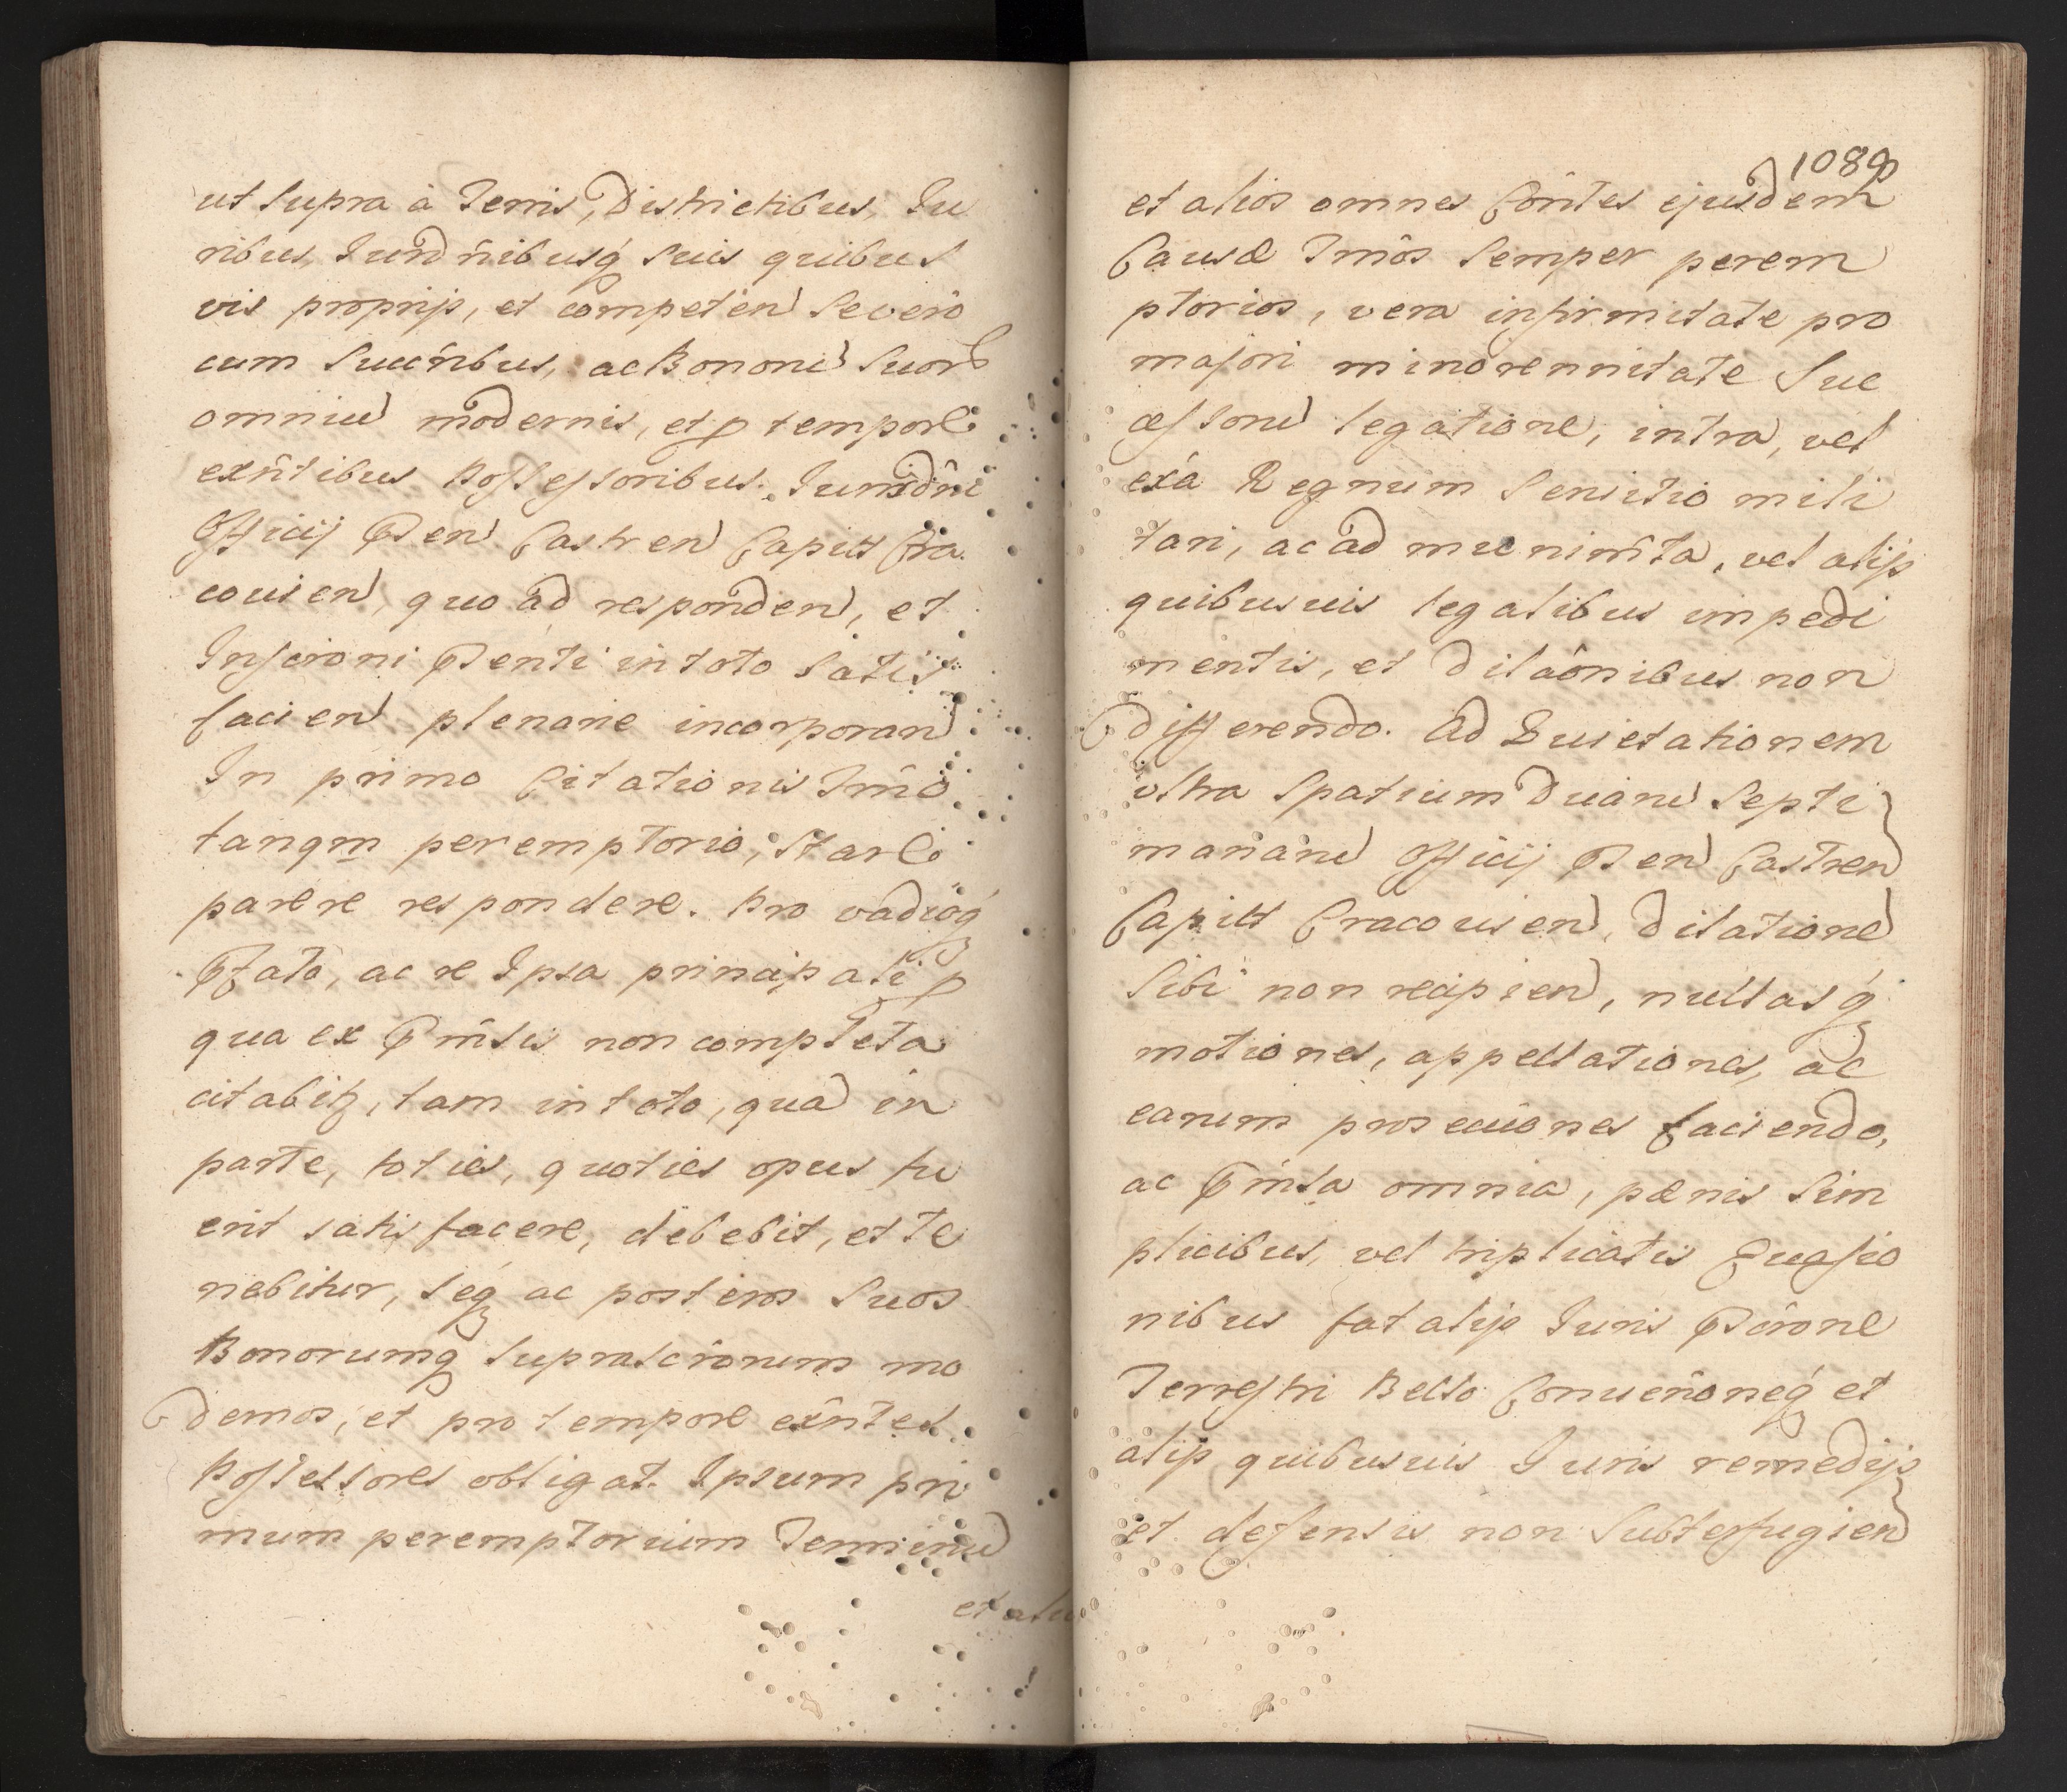 ut supra à Terris, Districtibus, Iu
ribus, Iurisd̃nibusq́ suis quibus
vis proprijs, et competen̄ se vero
cum succr̃ibus, ac Bonorū suorū
omniū modernis, et p tempore
exñtibus Possessoribus. Iurisdñi
Officij Psen̄ Castren̄ Capitt Cra
covien̄, quo ad responden̄, et
Inscrõni Psenti in toto satis
facien̄ plenarie incorporan̄
In primo Citationis Tm̃o
tanqm̄ peremptorio, stare
parere respondere. Pro vadioq́
Pfato, ac re Ipsa principali p
qua ex Pm̃sis non completa
citabitʒ, tam in toto, quā in
parte, toties, quoties opus fu
erit satisfacere, debebit, et te
nebitur, seq́ ac posteros suos
Bonorumq́ suprascrõrum mo
dernos, et pro tempore exñtes
Possessores obligat. Ipsum pri
mum peremptorium Terminū
et alios
1089
et alios omnes Cõntes ejusdem
Causæ Tm̃os semper perem
ptorios, vera infirmitate pro
majori minorennitate Suc
cessorū legatione, intra, vel
exâ Regnum servitio mili
tari, ac ad munim̃ta, vel alijs
quibusuis legalibus impedi
mentis, et dilaõnibus non
differendo. Ad Quietationem
ultra spatium Duarū Septi
manarū Officij Psen̄ Castren̄
Capitt Cracovien̄, dilationē
sibi non recipien̄, nullasq́
motiones, appellationes, ac
earum prosecuõnes faciendo,
ac Pm̃sa omnia, pœnis sim
plicibus, vel triplicatis Evasio
nibus fatalijs Iuris Pscrõne
Terrestri Bello Convenõneq́ et
alijs quibusuis Iuris remedijs
et defensis non subterfugien̄